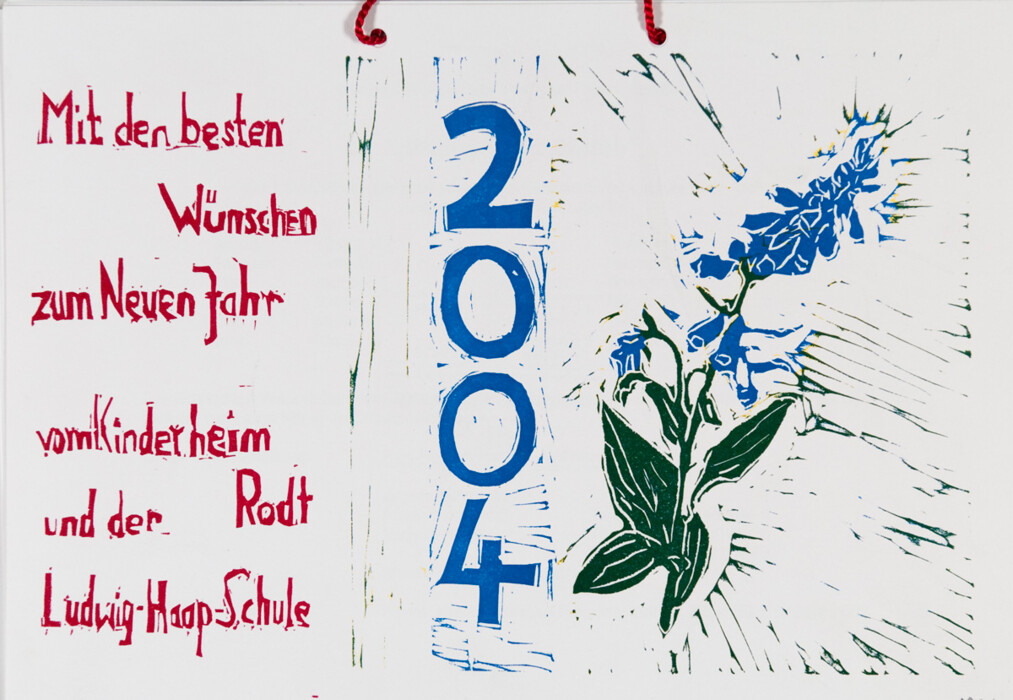 Mit den besten
Wünschen
zum Neuen Jahr
vom Kinderheim
Rodt
und der
Ludwig-Haap-Schule
2004